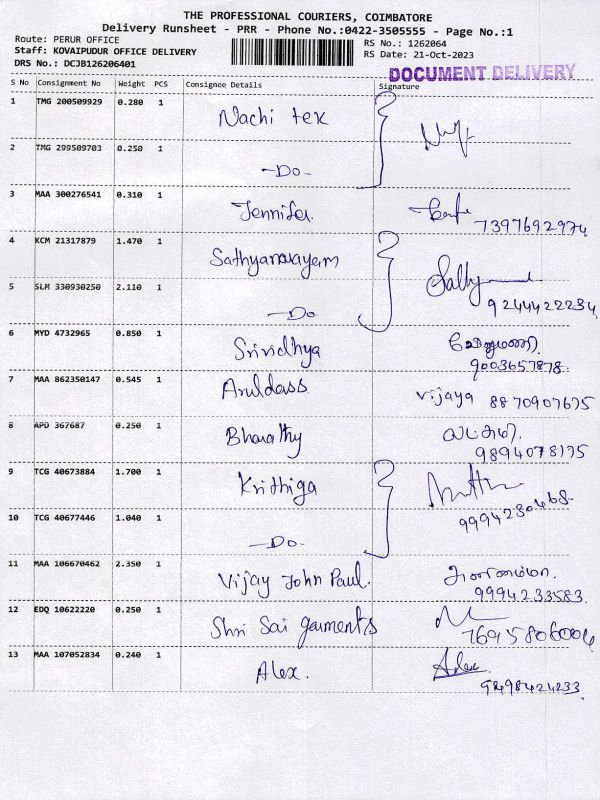 THE PROFESSIONAL COURIERS, COIMBATORE
Delivery Runsheet - PRR - Phone No.:0422-3505555 - Page No.:1
Route: PERUR OFFICE
RS No.: 1262064
Staff: KOVAIPUDUR OFFICE DELIVERY
RS Date: 21-Oct-2023
DRS No.: DCJB126206401
DOCUMENT DELIVERY
S No Consignment No Weight PCS Consignee Details Signature
1 TMG 200509929 0.280 1 Nachi tek
2 TMG 299509703 0.250 1 -Do-
3 MAA 300276541 0.310 1 Jennifer. 7397692974
4 KCM 21317879 1.470 1 Sathyanarayanan
5 SLM 330930250 2.110 1 -Do 9244422234
6 MYD 4732965 0.850 1 Srividhya வேலுமணி
9003657878.
7 MAA 862350147 0.545 1 Aruldass vijaya 8870907675
8 APD 367687 0.250 1 Bharathy லட்சுமி.
9894078175
9 TCG 40673884 1.700 1 Krithiga
9994230468
10 TCG 40677446 1.040 1 -Do-
11 MAA 106670462 2.350 1 Vijay John Paul. அன்னம்மா.
9994233583
12 EDQ 10622220 0.250 1 Shri Sai garments
7695806004
13 MAA 107052834 0.240 1 Alex. Alex
9498424233